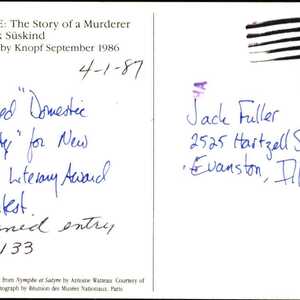 E: The Story of a Murderer
k Süskind
by Knopf September 1986
4-1-87
ed "Domestic
" for New
Literary Award
test.
ned entry
133
from Nymphe et Satyre by Antoine Watteau. Courtesy of
tograph by Réunion des Musées Nationaux, Paris
Jack Fuller
2525 Hartzell S
Evanston, Ill